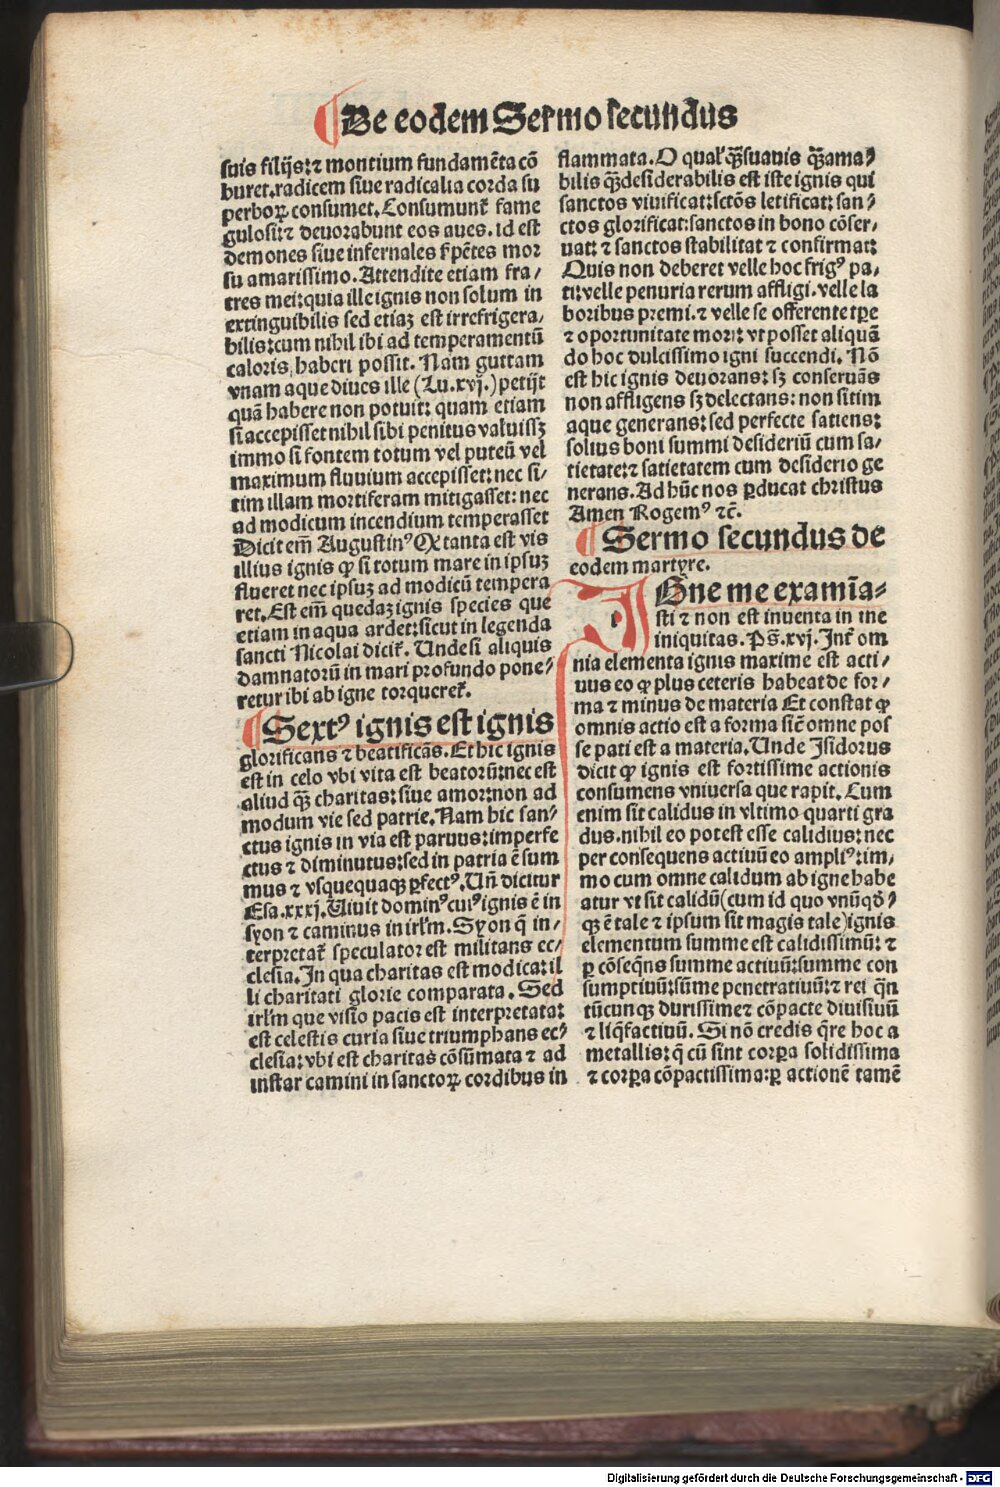 De eodem Sermo secundus
suis filijs: ⁊ montium fundamēta cō
buret. radicem siue radicalia corda su
perboꝝ consumet. Consumunt̄ fame
gulosi: ⁊ deuorabunt eos aues. id est
demones siue infernales s̄pētes mor
su amarissimo. Attendite etiam fra/
tres mei: quia ille ignis non solum in
extinguibilis sed etiaꝫ est irrefrigera/
bilis: cum nihil ibi ad temperamentū
caloris, haberi possit. Nam guttam
vnam aque diues ille (Lu. xvj.) petijt
quā habere non potuit: quam etiam
si accepisset nihil sibi penitus valuissꝫ
immo si fontem totum vel puteū vel
maximum fluuium accepisset: nec si/
tim illam mortiferam mitigasset: nec
ad modicum incendium temperasset
Dicit em̄ Augustinꝰ Ex tanta est vis
illius ignis ꝙ si totum mare in ipsuꝫ
flueret nec ipsuꝫ ad modicū tempera
ret. Est em̄ quedaꝫ ignis species que
etiam in aqua ardet: sicut in legenda
sancti Nicolai dicit̄. Unde si aliquis
damnatorū in mari profundo pone/
retur ibi ab igne torqueret̄.
Sextꝰ ignis est ignis
glorificans ⁊ beatificās. Et hic ignis
est in celo vbi vita est beatorū: nec est
aliud qꝫ̄ charitas: siue amor: non ad
modum vie sed patrie. Nam hic san/
ctus ignis in via est paruus: imperfe
ctus ⁊ diminutus: sed in patria ē sum
mus ⁊ vsquequaqꝫ ꝑfectꝰ. Un̄ dicitur
Esa. xxxj. Uiuit dominꝰ cuiꝰ ignis ē in
syon ⁊ caminus in irl̄m. Syon q̄ in/
terpretat̄ speculator est militans ec/
clesia. In qua charitas est modica: il
li charitati glorie comparata. Sed
irl̄m que visio pacis est interpretata:
est celestis curia siue triumphans ec/
clesia: vbi est charitas cōsūmata ⁊ ad
instar camini in sanctoꝝ cordibus in
flammata. O qual' qꝫ̄ suauis qꝫ̄ ama/
bilis qꝫ̄ desiderabilis est iste ignis qui
sanctos viuificat: sctōs letificat: san/
ctos glorificat: sanctos in bono cōser/
uat: ⁊ sanctos stabilitat ⁊ confirmat:
Quis non deberet velle hoc frigꝰ pa/
ti: velle penuria rerum affligi. velle la
boribus premi. ⁊ velle se offerente tp̄e
⁊ oportunitate mori: vt posset aliquā
do hoc dulcissimo igni succendi. Nō
est hic ignis deuorans: sꝫ conseruās
non affligens sꝫ delectans: non sitim
aque generans: sed perfecte satiens:
solius boni summi desideriū cum sa/
tietate: ⁊ satietatem cum desiderio ge
nerans. Ad hūc nos ꝑducat christus
Amen Rogemꝰ ⁊c̄.
Sermo secundus de
eodem martyre.
IGne me examīa-
sti ⁊ non est inuenta in me
iniquitas. Ps̄. xvj. Int̄ om
nia elementa ignis maxime est acti/
uus eo ꝙ plus ceteris habeat de for/
ma ⁊ minus de materia Et constat ꝙ
omnis actio est a forma sic̄ omne pos
se pati est a materia. Unde Isidorus
dicit ꝙ ignis est fortissime actionis
consumens vniuersa que rapit. Cum
enim sit calidus in vltimo quarti gra
dus. nihil eo potest esse calidius: nec
per consequens actiuū eo ampliꝰ: im/
mo cum omne calidum ab igne habe
atur vt sit calidū (cum id quo vnūqd̄
qꝫ ē tale ⁊ ipsum sit magis tale) ignis
elementum summe est calidissimū: ⁊
ꝑ cōseqn̄s summe actiuū: summe con
sumptiuū: sūme penetratiuū: ⁊ rei qn̄
tūcunqꝫ durissime ⁊ cōpacte diuisiuū
⁊ liq̄factiuū. Si nō credis q̄re hoc a
metallis: q̄ cū sint corꝑa solidissima
⁊ corꝑa cōpactissima: ꝑ actionē tamē
Digitalisierung gefördert durch die Deutsche Forschungsgemeinschaft - DFG